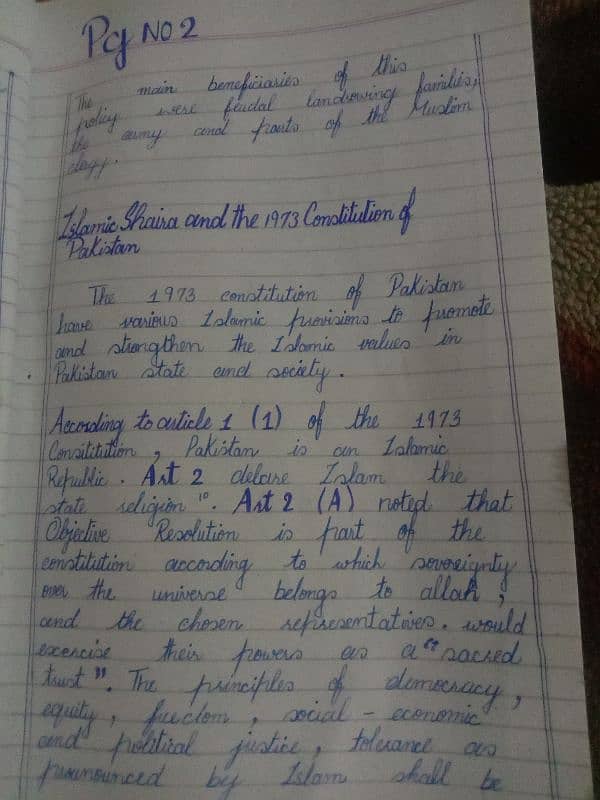 Pg NO 2
The main beneficiaries of this
policy were feudal landowing families,
the army and parts of the Muslim
clagy.
Islamic Shaira and the 1973 Constitution of
Pakistan
The 1973 constitution of Pakistan
have various Islamic provisions to promote
and strengthen the Islamic values in
Pakistan state and society.
According to article 1 (1) of the 1973
Consititution, Pakistan is an Islamic
Republic. Art 2 delcare Islam the
state religion". Art 2 (A) noted that
Objective Resolution is part of the
constitution according to which sovereignty
over the universe belongs to allah,
and the chosen representatives. would
excercise their powers as a "sacred
trust". The principles of democracy,
equity, freedom, social - economic
and political justice, tolerance as
pronounced by Islam shall be